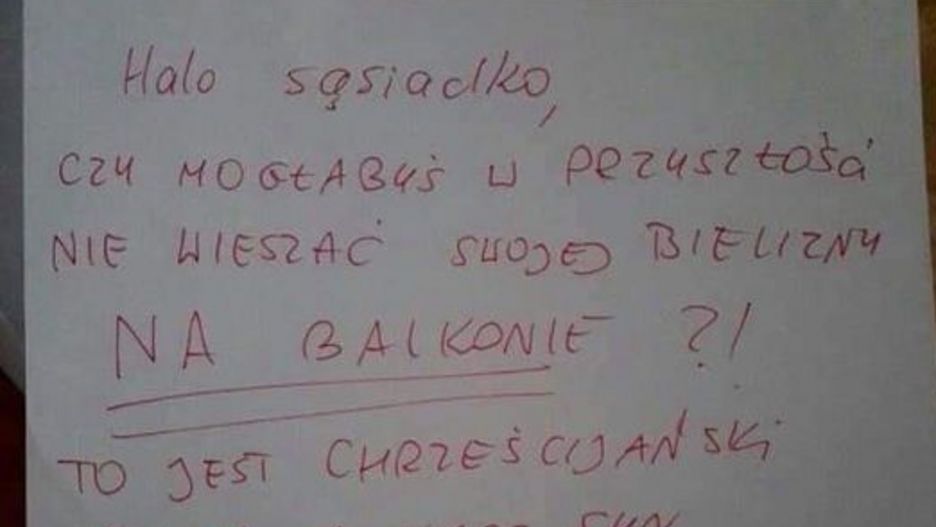 Halo sąsiadko,
CZY MOGŁABYŚ W PRZYSZŁOŚCI
NIE WIESZAĆ SWOJEJ BIELIZNY
NA BALKONIE ?!
TO JEST CHRZEŚCIJAŃSKI